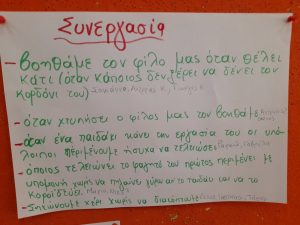 Συνεργασία
- βοηθάμε τον φίλο μας όταν θέλει
κάτι (όταν κάποιος δεν ξέρει να δένει τον
κορδόνι του)
- όταν χτυπήσει ο φίλος μας τον βοηθάμε
- όταν ένα παιδάκι κάνει την εργασία του οι υπό-
λοιποι περιμένουμε ήσυχα να τελειώσει
- όποιος τελειώνει το φαγητό του πρώτος περιμένει με
υπομονή χωρίς να πηγαίνει γύρω από το παιδάκι και να το
κοροϊδεύει.
- Σηκώνουμε χέρι χωρίς να